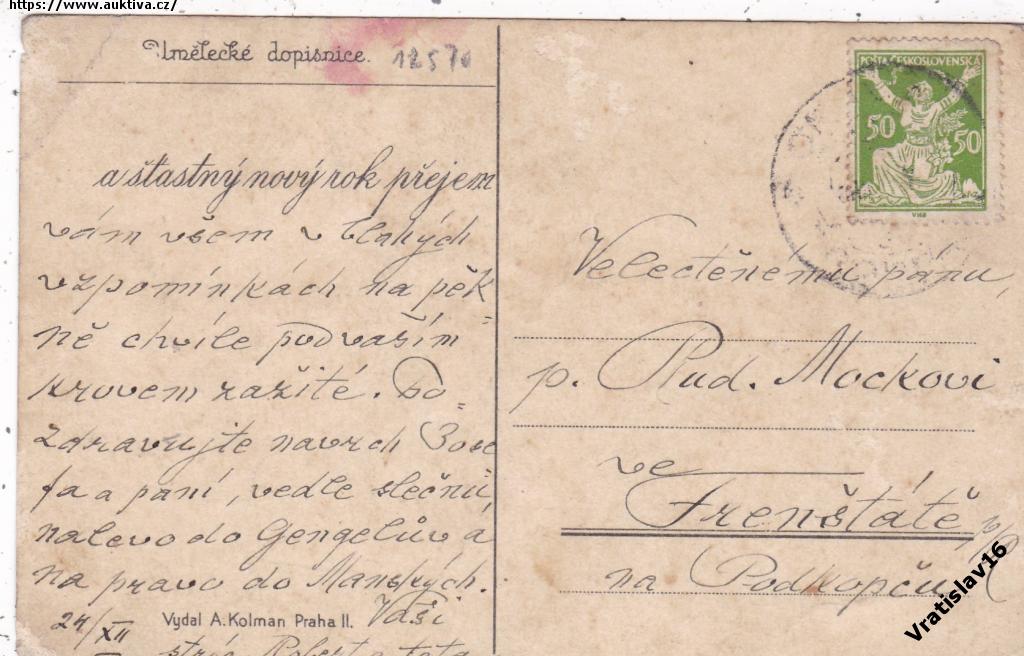 https://www.auktiva.cz/
Umělecké dopisnice.
12570
a šťastný nový rok přejem
vám všem v blahých
vzpomínkách na pěk=
ně chvíle pod vaším
krovem zažité. Po=
zdravujte navrch Jose
fa a paní, vedle slečnu,
nalevo do Gengelův a
na pravo do Manských.
24/XII
Vaši
Vydal A. Kolman Praha II.
strýc Robert a teta
POŠTA ČESKOSLOVENSKÁ
50 50
Velectěnému pánu,
p. Rud. Mockovi
ve
Frenštátě p/R
na Podkopču
Vratislav16